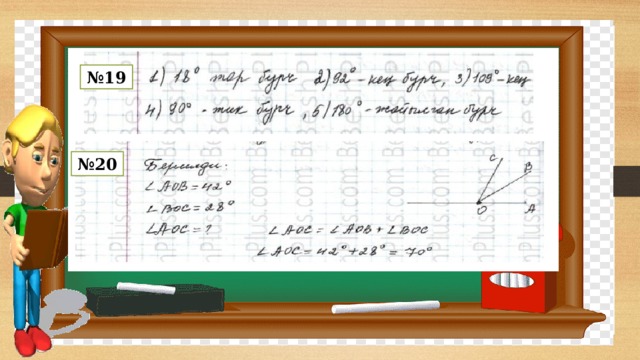 №19
1) 18° тар бурч 2) 92° - кең бурч, 3) 109° - кең
4) 90° - тик бурч, 5) 180° - жайылган бурч
№20
Берилди:
∠AOB = 42°
∠BOC = 28°
∠AOC = ?
∠AOC = ∠AOB + ∠BOC
∠AOC = 42° + 28° = 70°
C
B
O A